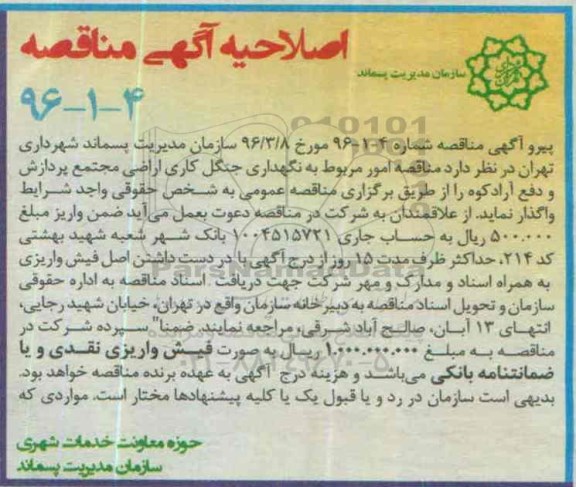 اصلاحیه آگهی مناقصه
سازمان مدیریت پسماند
۹۶-۱-۴
پیرو آگهی مناقصه شماره ۴-۱-۹۶ مورخ ۹۶/۳/۸ سازمان مدیریت پسماند شهرداری
تهران در نظر دارد مناقصه امور مربوط به نگهداری جنگل کاری اراضی مجتمع پردازش
و دفع آرادکوه را از طریق برگزاری مناقصه عمومی به شخص حقوقی واجد شرایط
واگذار نماید. از علاقمندان به شرکت در مناقصه دعوت بعمل می آید ضمن واریز مبلغ
۵۰۰.۰۰۰ ریال به حساب جاری ۱۰۰۴۵۱۵۷۲۱ بانک شهر شعبه شهید بهشتی
کد ۲۱۴، حداکثر ظرف مدت ۱۵ روز از درج آگهی با در دست داشتن اصل فیش واریزی
به همراه اسناد و مدارک و مهر شرکت جهت دریافت اسناد مناقصه به اداره حقوقی
سازمان و تحویل اسناد مناقصه به دبیرخانه سازمان واقع در تهران، خیابان شهید رجایی،
انتهای ۱۳ آبان، صالح آباد شرقی، مراجعه نمایند. ضمنا" سپرده شرکت در
مناقصه به مبلغ ۱.۰۰۰.۰۰۰.۰۰۰ ریال به صورت فیش واریزی نقدی و یا
ضمانتنامه بانکی می باشد و هزینه درج آگهی به عهده برنده مناقصه خواهد بود.
بدیهی است سازمان در رد و یا قبول یک یا کلیه پیشنهادها مختار است. مواردی که
حوزه معاونت خدمات شهری
سازمان مدیریت پسماند
ParsNamadData